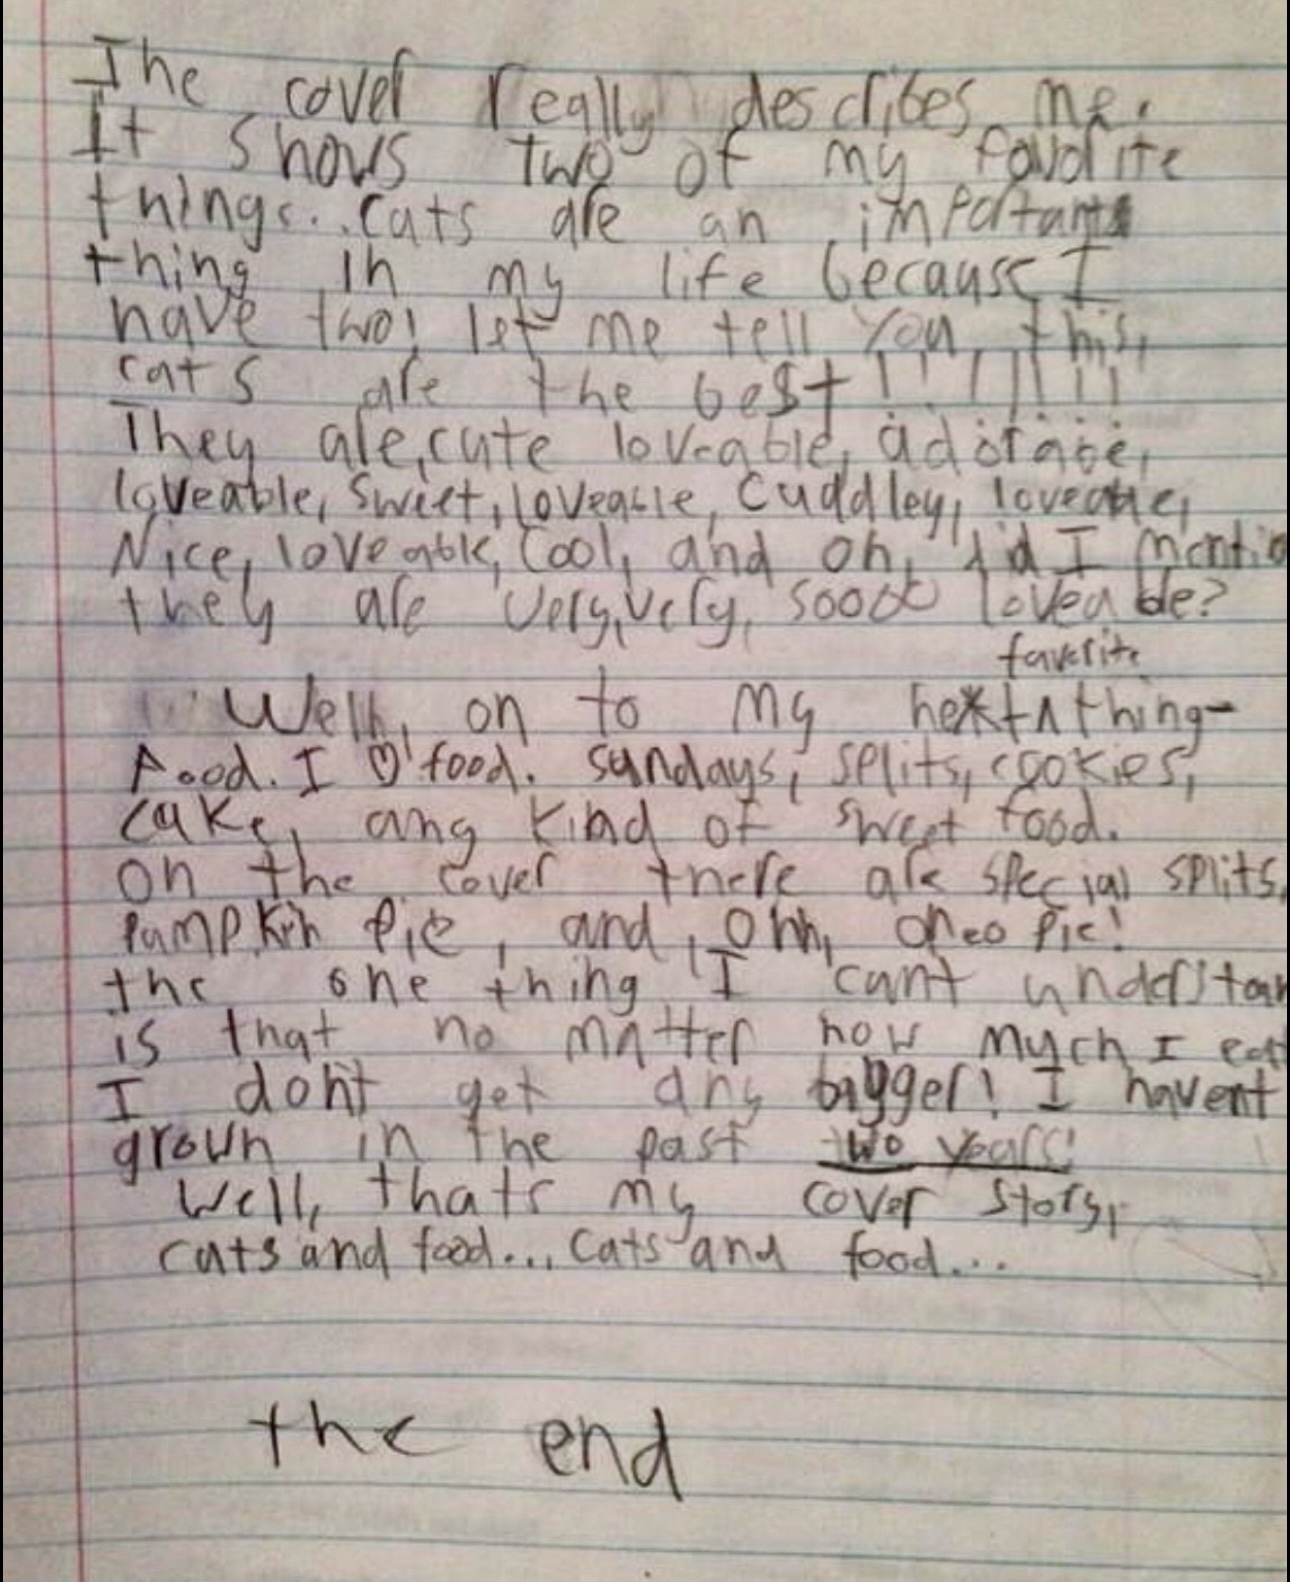 The cover really describes me.
It shows two of my favorite
things... cats are an important
thing in my life because I
have two! let me tell you this,
cats are the best!!!!!!!!
They are, cute loveable, adorabe,
loveable, sweet, loveable, cuddley, loveable,
Nice, loveable, cool, and oh, did I mentio
they are very, very, soooo loveable?
favorite
Well, on to my next ^ thing-
Food. I ♡ food. sundays, splits, cookies,
cake, any kind of sweet food.
on the cover there are special splits,
pumpkin pie, and, ohh, oreo pie!
the one thing I cant understan
is that no matter how much I eat
I dont get any bigger! I havent
grown in the past two years!
Well, thats my cover story,
cats and food... cats and food...
the end